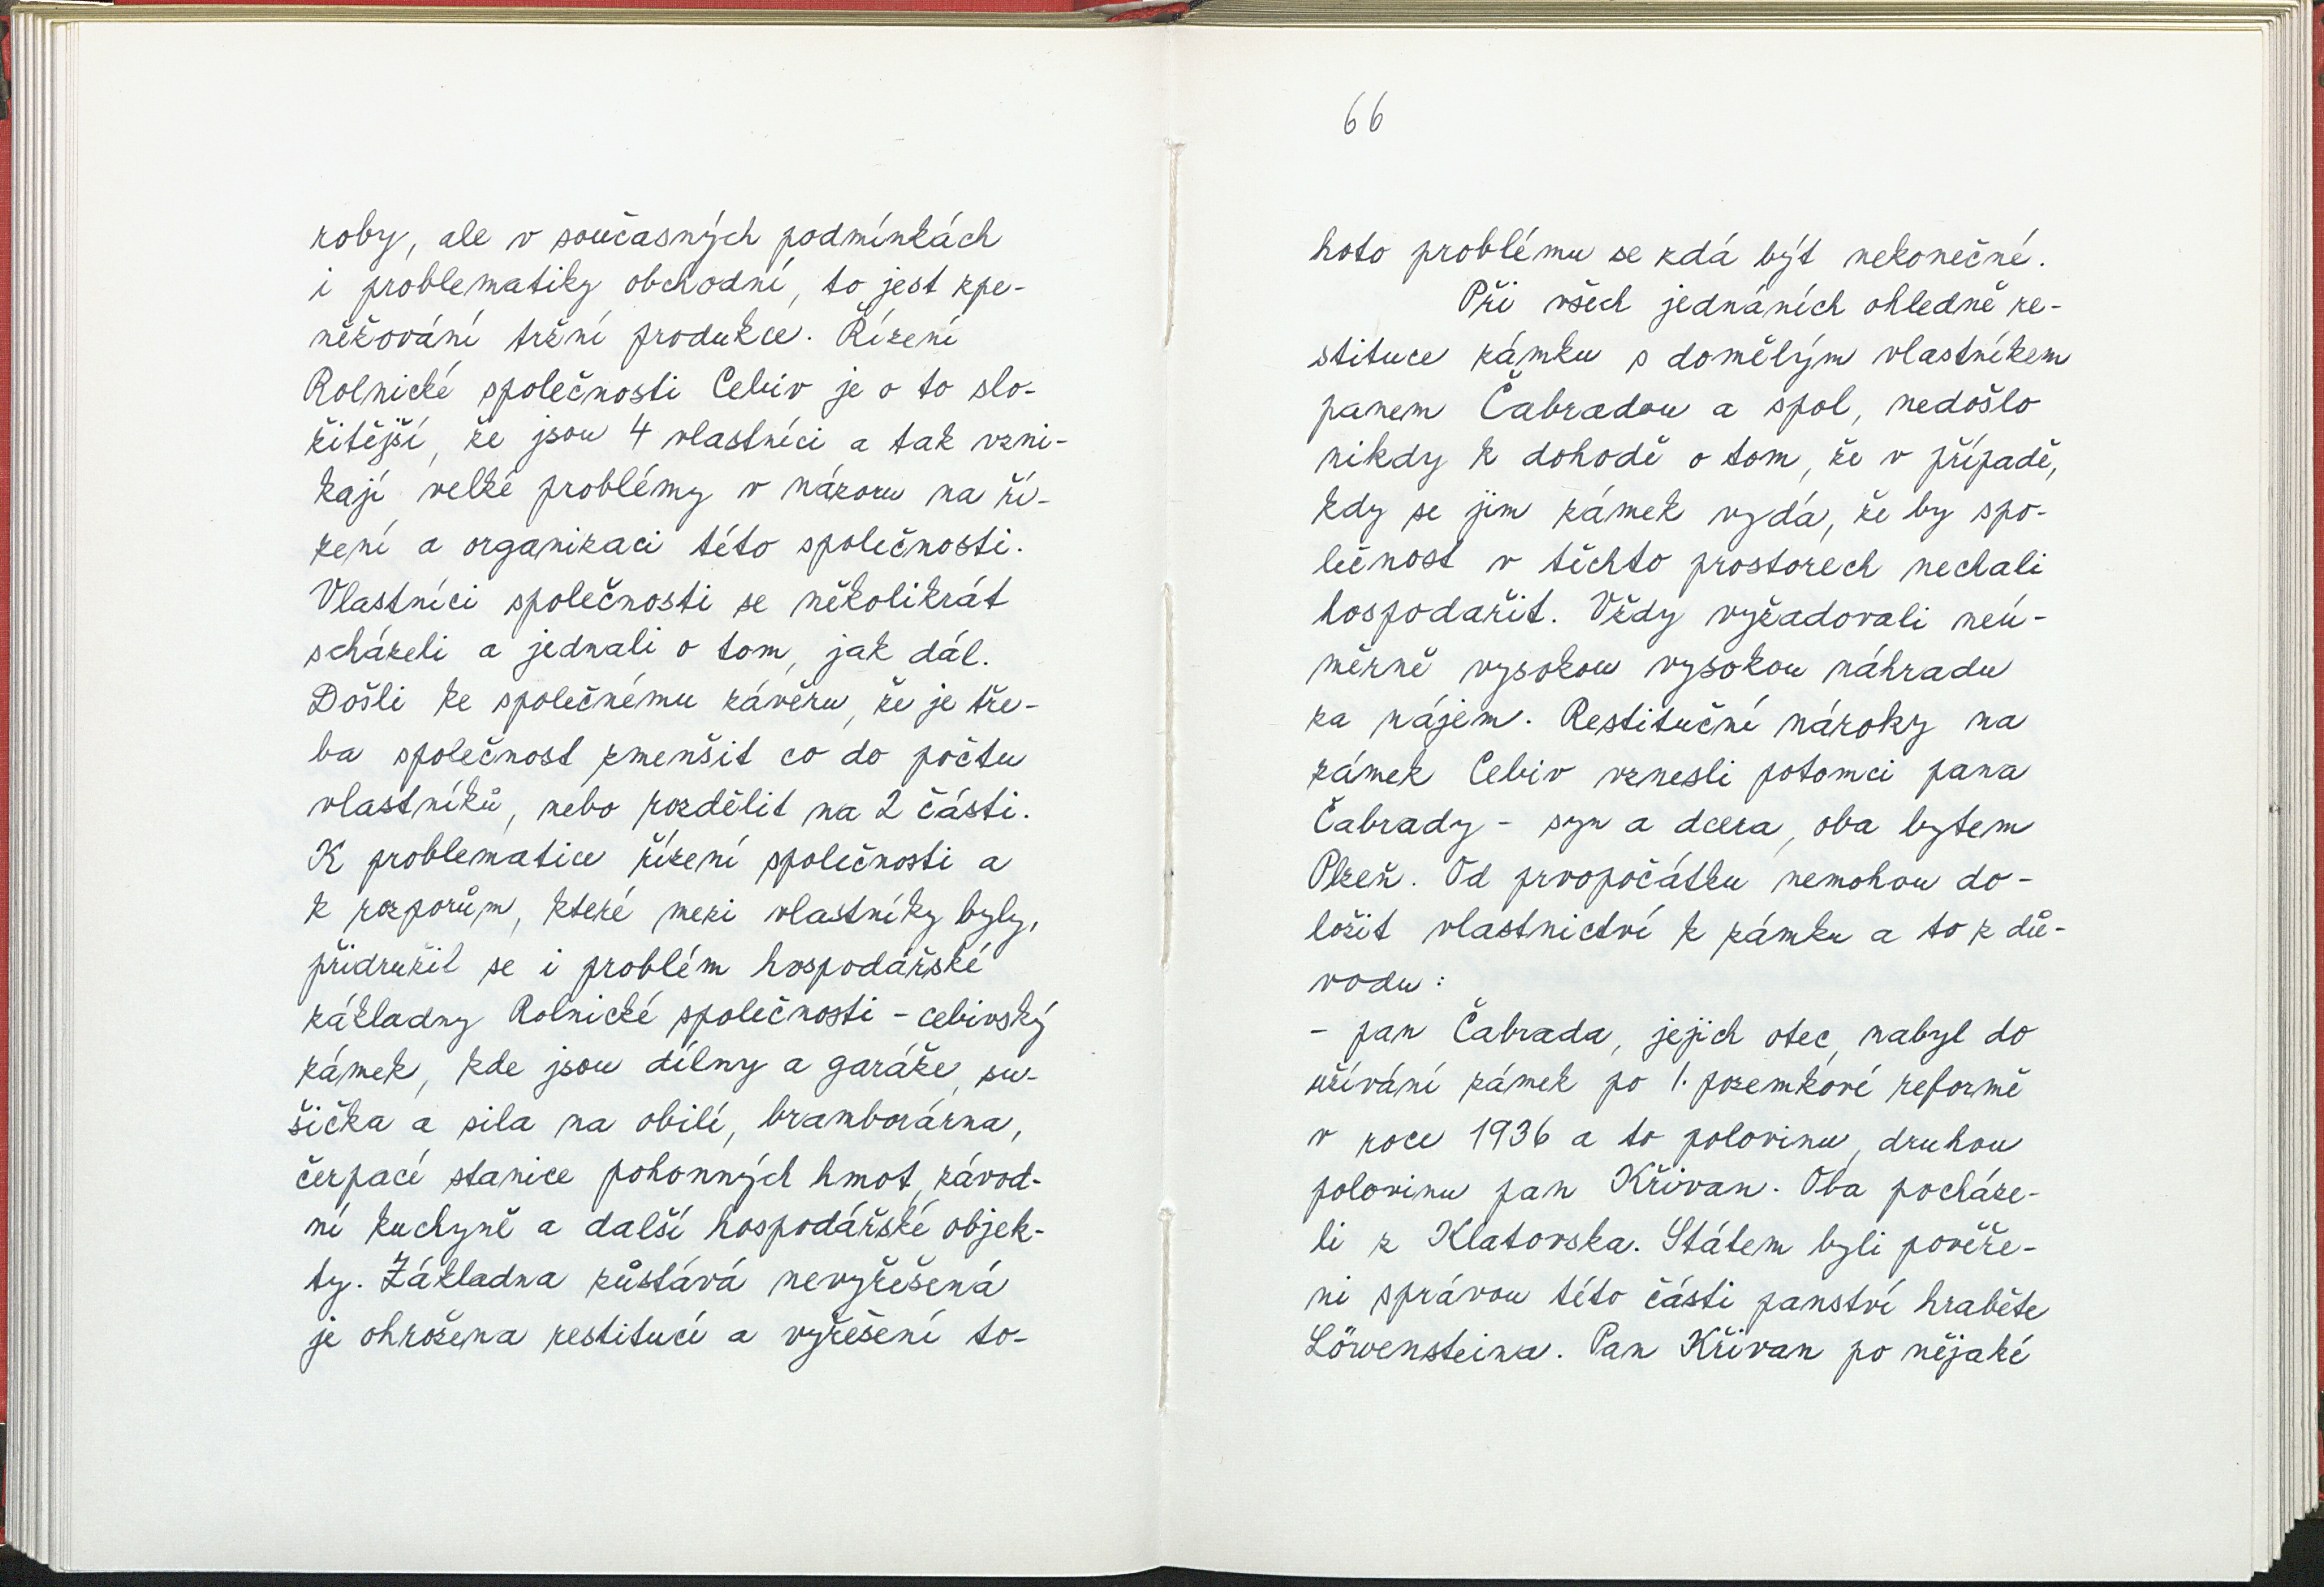 roby, ale v současných podmínkách
i problematiky obchodní, to jest zpe-
něžování tržní produkce. Řízení
Rolnické společnosti Cebiv je o to slo-
žitější, že jsou 4 vlastníci a tak vzni-
kají velké problémy v názoru na ří-
zení a organizaci této společnosti.
Vlastníci společnosti se několikrát
scházeli a jednali o tom, jak dál.
Došli ke společnému závěru, že je tře-
ba společnost zmenšit co do počtu
vlastníků, nebo rozdělit na 2 části.
K problematice řízení společnosti a
k rozporům, které mezi vlastníky byly,
přidružil se i problém hospodářské
základny Rolnické společnosti - cebivský
zámek, kde jsou dílny a garáže, su-
šička a sila na obilí, bramborárna,
čerpací stanice pohonných hmot, závod-
ní kuchyně a další hospodářské objek-
ty. Základna zůstává nevyřešená
je ohrožena restitucí a vyřešení to-
66
hoto problému se zdá být nekonečné.
Při všech jednáních ohledně re-
stituce zámku s domělým vlastníkem
panem Čabradou a spol, nedošlo
nikdy k dohodě o tom, že v případě,
kdy se jim zámek vydá, že by spo-
lečnost v těchto prostorech nechali
hospodařit. Vždy vyžadovali neú-
měrně vysokou vysokou náhradu
za nájem. Restituční nároky na
zámek Cebiv vznesli potomci pana
Čabrady - syn a dcera, oba bytem
Plzeň. Od prvopočátku nemohou do-
ložit vlastnictví k zámku a to z dů-
vodu:
- pan Čabrada, jejich otec, nabyl do
užívání zámek po 1. pozemkové reformě
v roce 1936 a to polovinu, druhou
polovinu pan Křivan. Oba pocháze-
li z Klatovska. Státem byli pověře-
ni správou této části panství hraběte
Löwensteina. Pan Křivan po nějaké